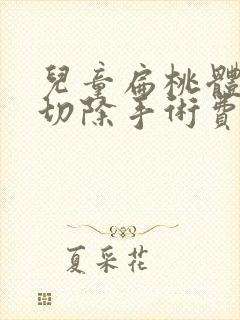 兒童扁桃體
切除手術費
夏采花